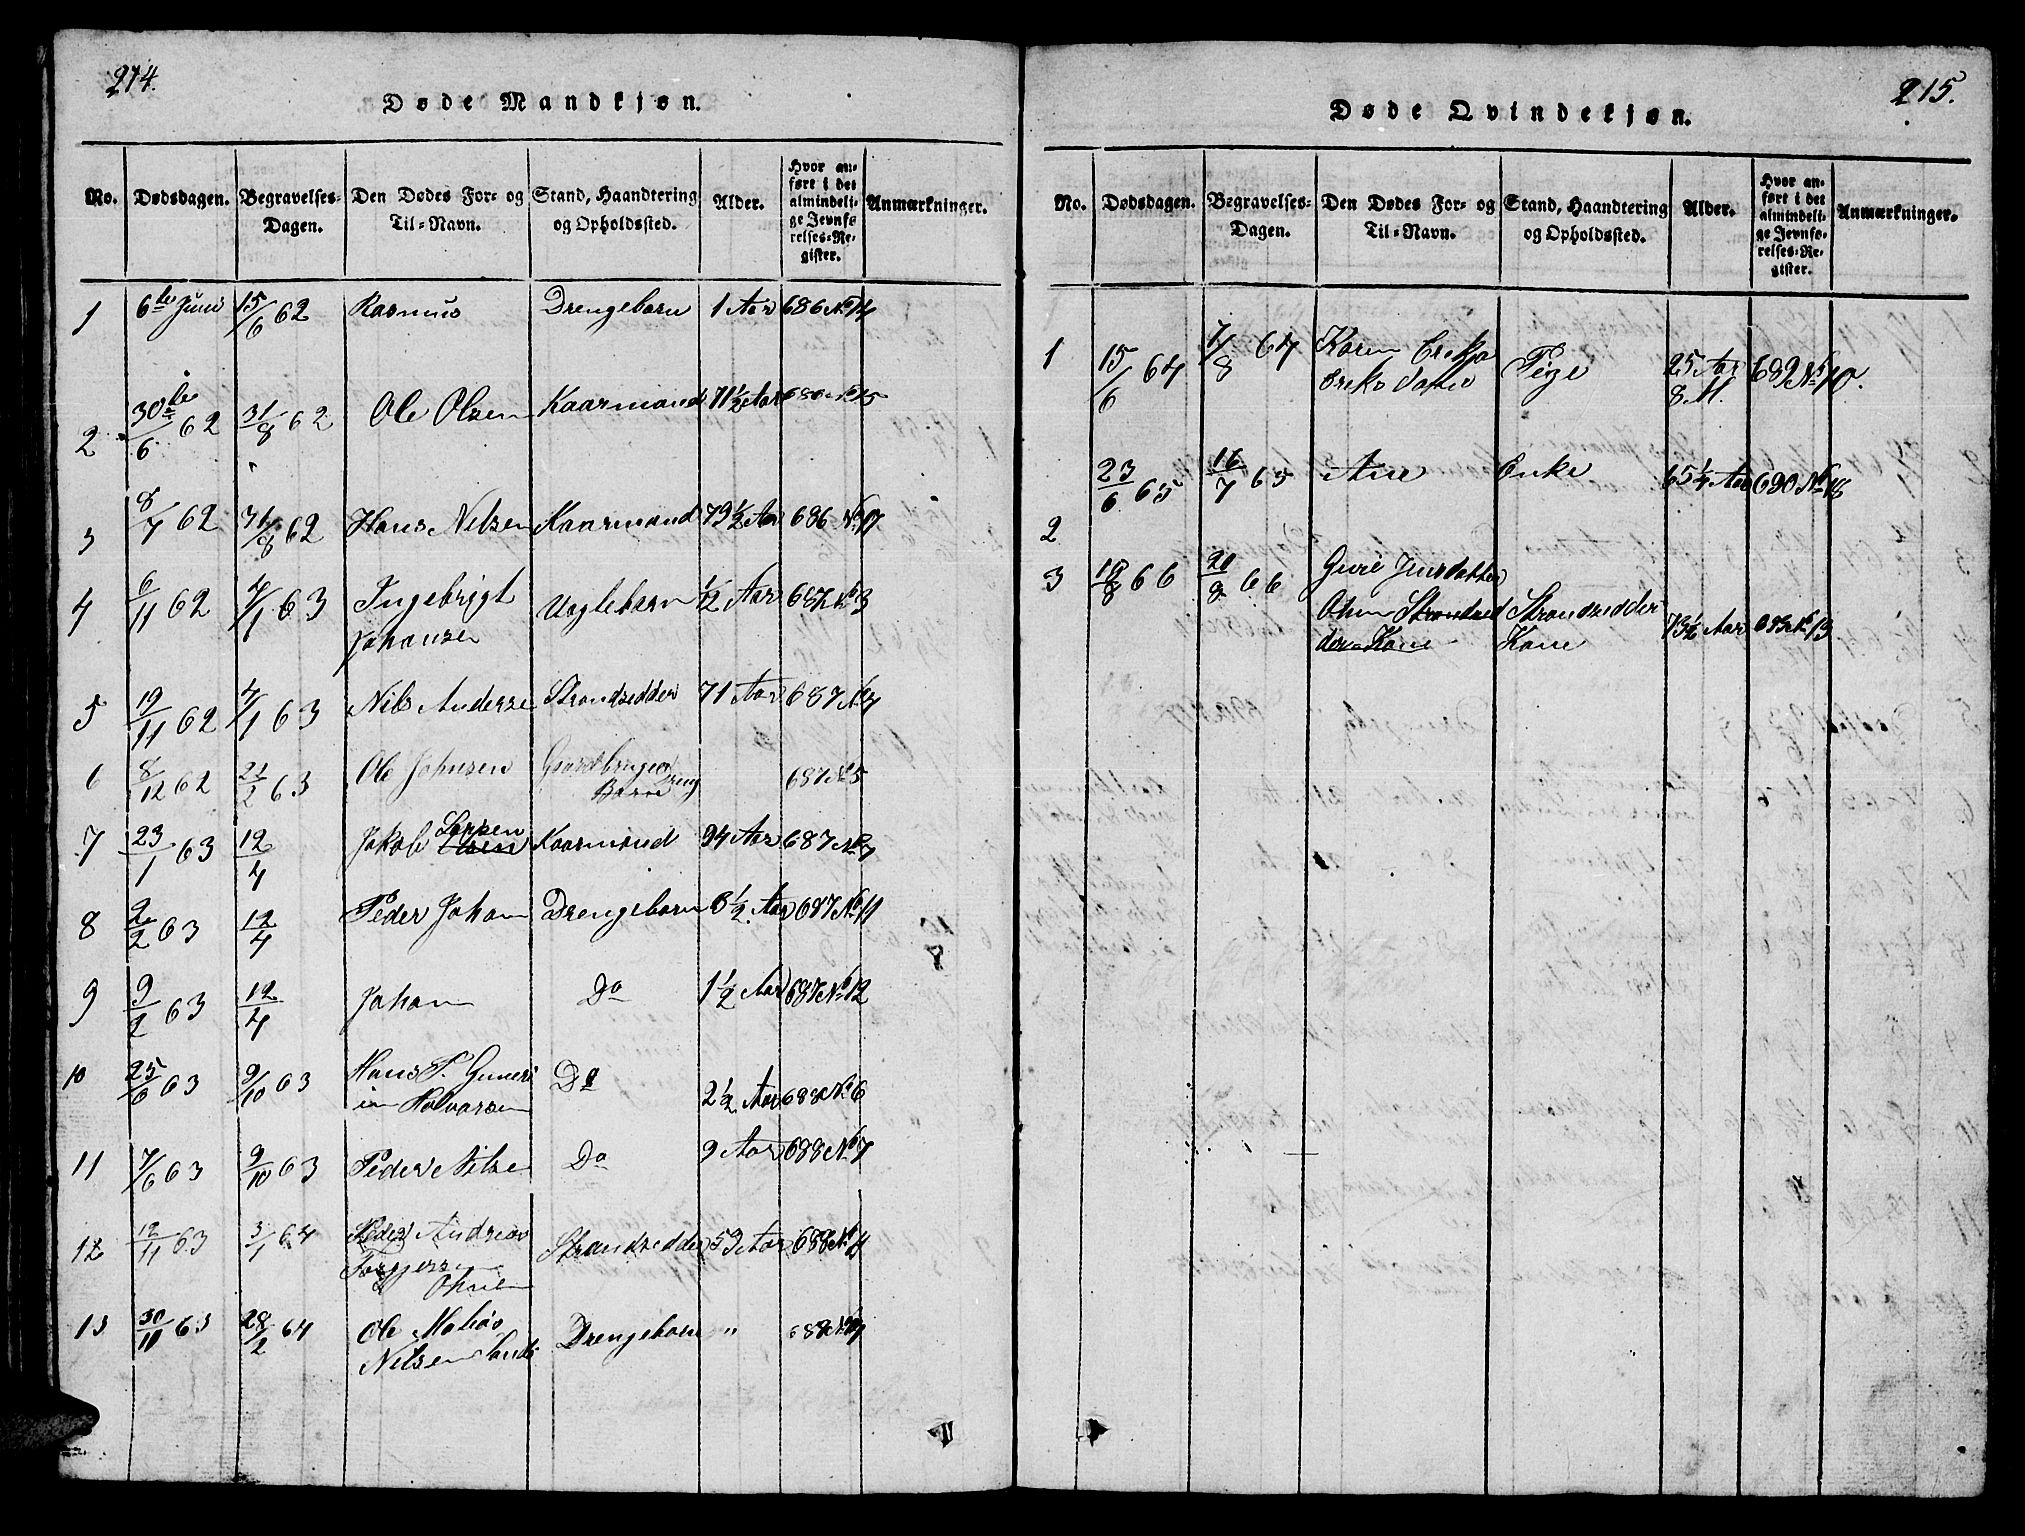 214.
Døde Mandkjøn.
No. Dødsdagen. Begravelses-Dagen. Den Dødes For- og Til-Navn. Stand, Haandtering og Opholdssted. Alder. Hvor anført i det almindelige Jevnførelses-Register. Anmærkninger.
1 6te Juni 15/6 62 Rasmus Drengebarn 1 Aar 686 No 14
2 30te/6 62 31/8 62 Ole Olsen Kaarmand 71½ Aar 686 No 15
3 8/7 62 31/8 62 Hans Nilsen Kaarmand 79½ Aar 686 No 17
4 6/11 62 4/1 63 Ingebrigt ½ Aar 687 No 3
Johansen
5 19/11 62 4/1 63 Nils Anderse Strandsedder 71 Aar 687 No 4
6 8/12 62 21/2 63 Ole Johnsen Gaardbruger 687 No 5
Barn Dreng
7 23/1 63 12/4 Jakob Larsen Kaarmand 94 Aar 687 No
8 2/2 63 12/4 Peder Johan Drengebarn 3½ Aar 687 No 11
9 9/2 63 12/4 Johan Do 1½ Aar 687 No 12
10 25/6 63 9/10 63 Hans P. Guneri Do
in Halvorsen 2½ Aar 688 No 6
11 7/6 63 9/10 63 Peder Nilse Do 9 Aar 688 No 7
12 12/11 63 3/1 64 Peder Andreas Strandsedder 53 Aar 688 No
Torgersen
13 30/11 63 28/2 64 Ole Mobias Drengebarn " 688 No
Nilsen Sands
215.
Døde Qvindekjøn.
No. Dødsdagen. Begravelses-Dagen. Den Dødes For- og Til-Navn. Stand, Haandtering og Opholdssted. Alder. Hvor anført i det almindelige Jevnførelses-Register. Anmærkninger.
1 15/6 64 7/8 64 Karen Erikja Pige 25 Aar 689 No 10.
8 M.
2 23/6 65 16/7 65 Ane Enke 65¼ Aar 690 No 18
3 19/8 66 20/8 66 Guri Jensdatter
Strandsed Strandsedder 73½ Aar No 13
der Kone Kone